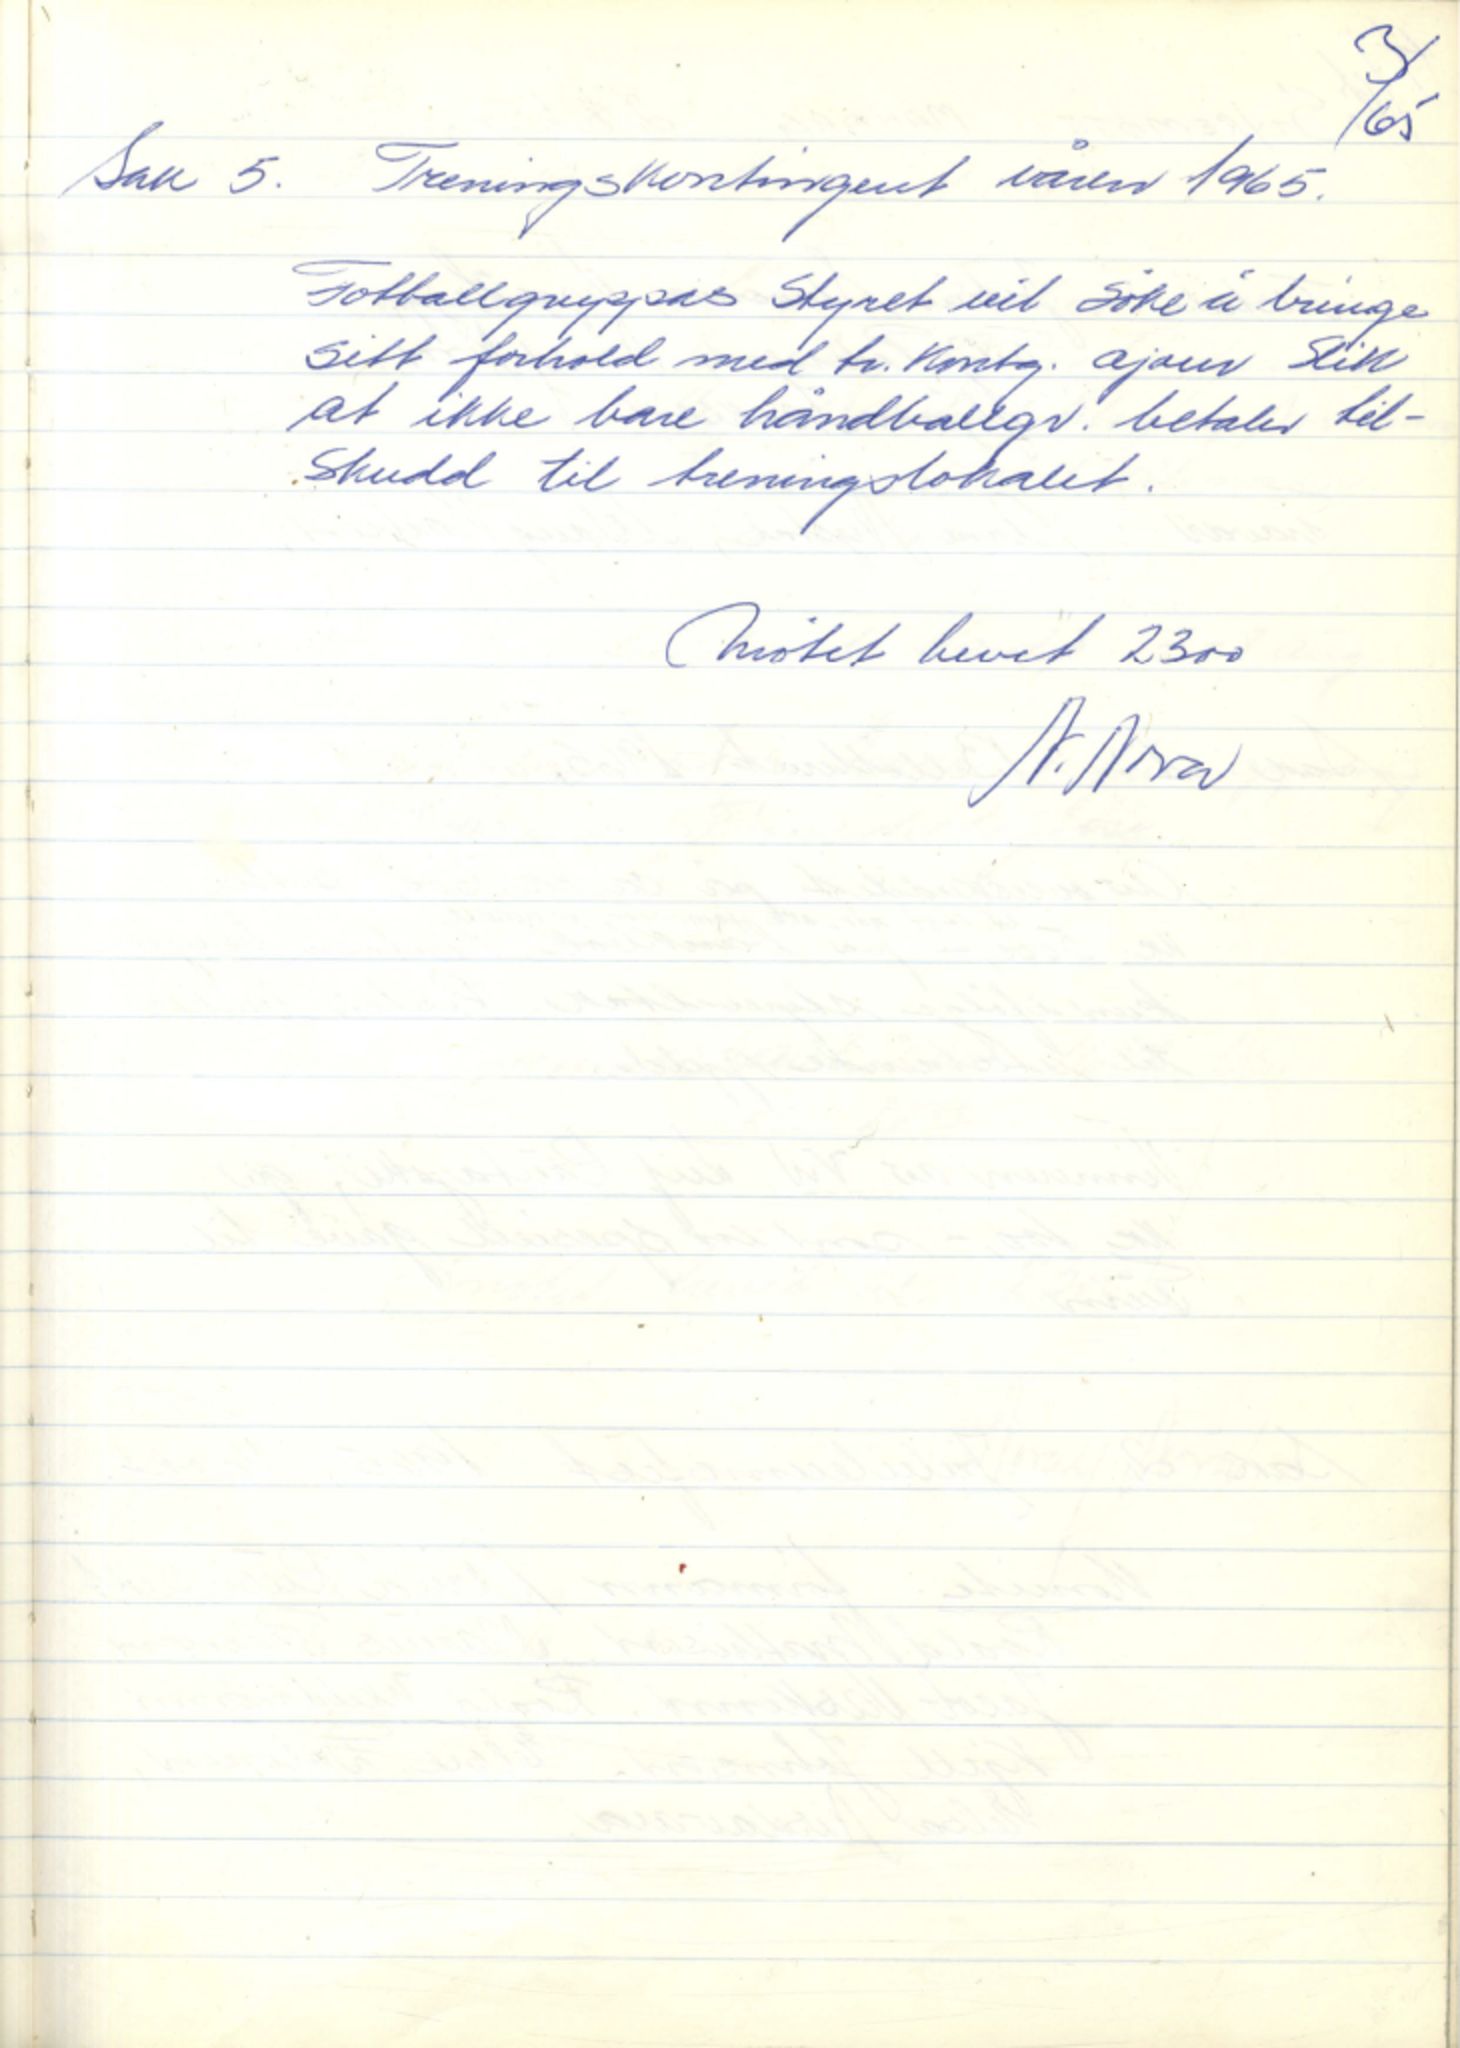 3/65
Sak 5. Treningskontingent våren 1965.
Fotballgruppas Styret vil søke å bringe
sitt forhold med tr. kontg. ajour slik
at ikke bare håndballgr. betaler til-
skudd til treningslokalet.
Møtet hevet 2300